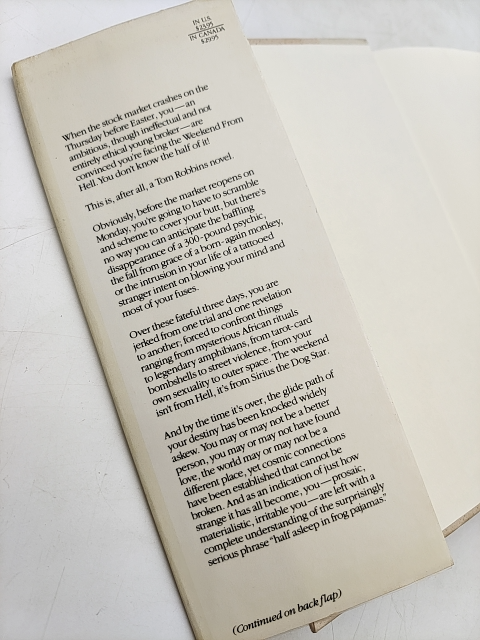 IN U.S.
$23.95
IN CANADA
$29.95
When the stock market crashes on the
Thursday before Easter, you—an
ambitious, though ineffectual and not
entirely ethical young broker—are
convinced you're facing the Weekend From
Hell. You don't know the half of it!
This is, after all, a Tom Robbins novel.
Obviously, before the market reopens on
Monday, you're going to have to scramble
and scheme to cover your butt, but there's
no way you can anticipate the baffling
disappearance of a 300-pound psychic,
the fall from grace of a born-again monkey,
or the intrusion in your life of a tattooed
stranger intent on blowing your mind and
most of your fuses.
Over these fateful three days, you are
jerked from one trial and one revelation
to another; forced to confront things
ranging from mysterious African rituals
to legendary amphibians, from tarot-card
bombshells to street violence, from your
own sexuality to outer space. The weekend
isn't from Hell, it's from Sirius the Dog Star.
And by the time it's over, the glide path of
your destiny has been knocked widely
askew. You may or may not be a better
person, you may or may not have found
love, the world may or may not be a
different place, yet cosmic connections
have been established that cannot be
broken. And as an indication of just how
strange it has all become, you—prosaic,
materialistic, irritable you—are left with a
complete understanding of the surprisingly
serious phrase "half asleep in frog pajamas."
(Continued on back flap)